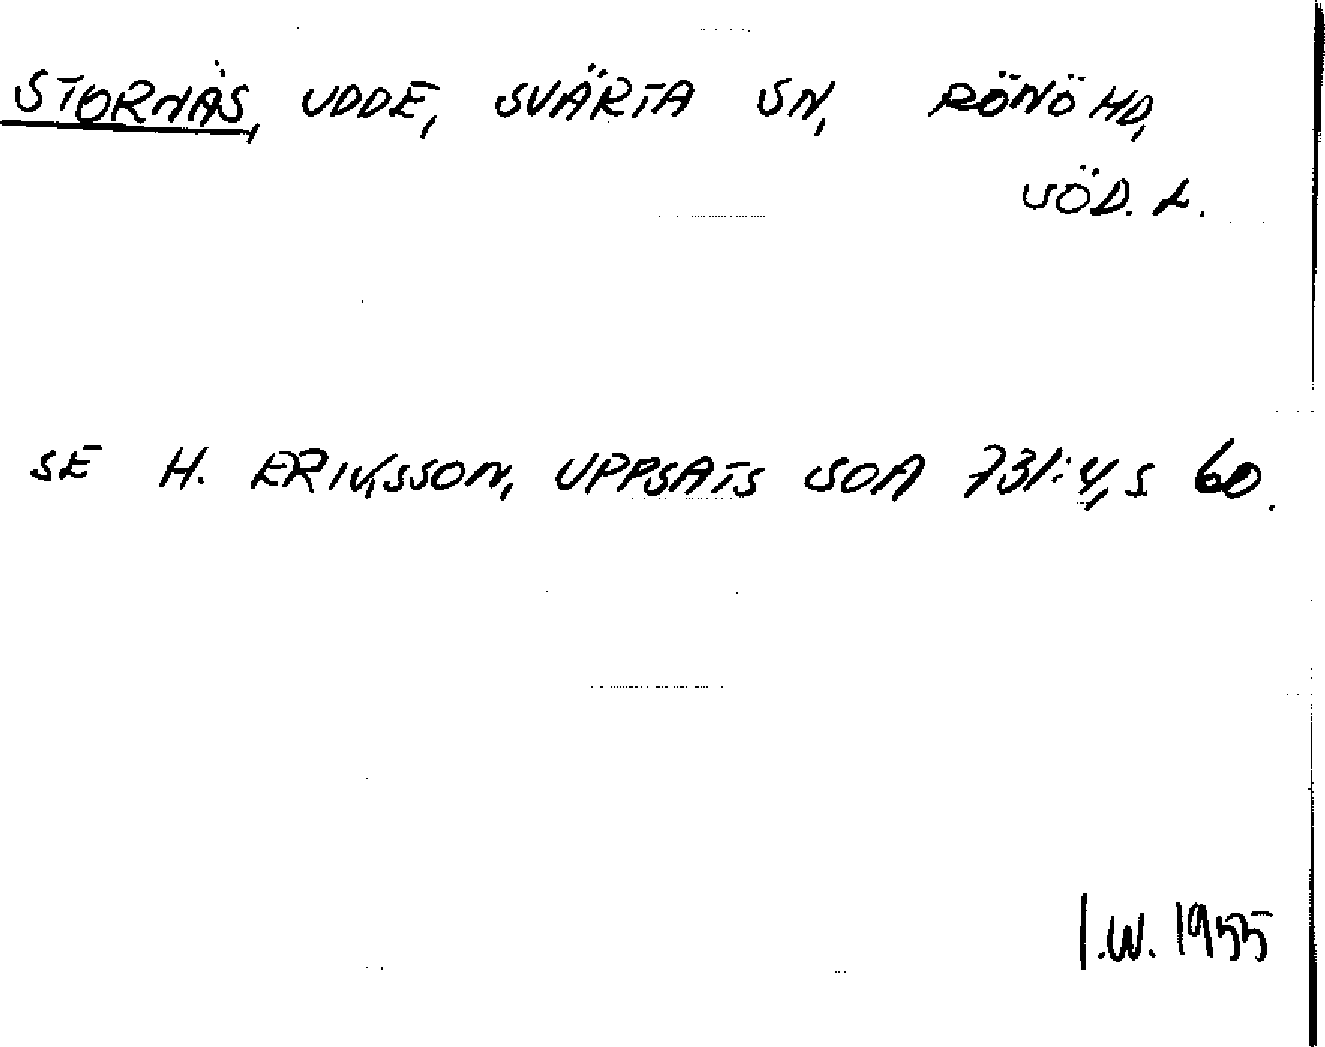 STORNÄS, UDDE, SVÄRTA SN, RÖNÖ HD,
SÖD. L.
SE H. ERIKSSON, UPPSATS SOA 731:4, S 60.
I.W. 1955